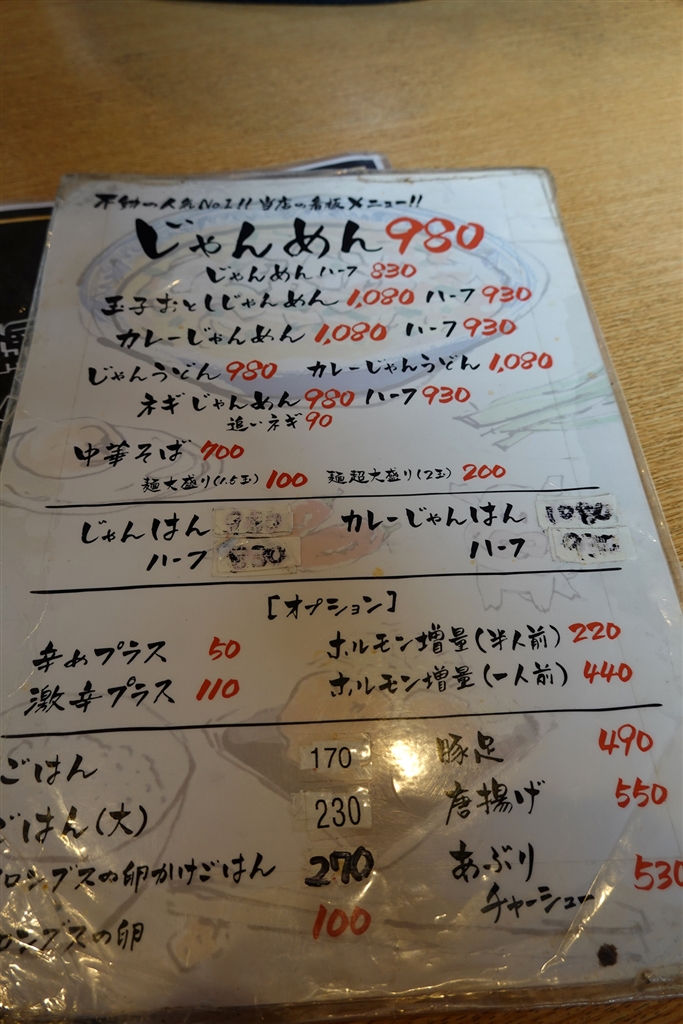 不動の人気No.1!! 当店の看板メニュー!!
じゃんめん 980
じゃんめんハーフ 830
玉子おとしじゃんめん 1,080 ハーフ 930
カレーじゃんめん 1,080 ハーフ 930
じゃんうどん 980 カレーじゃんうどん 1,080
ネギじゃんめん 980 ハーフ 930
追いネギ 90
中華そば 700
麺大盛り(1.5玉) 100 麺超大盛り(2玉) 200
じゃんはん カレーじゃんはん 1080
ハーフ 830 ハーフ 930
[オプション]
辛めプラス 50 ホルモン増量(半人前) 220
激辛プラス 110 ホルモン増量(一人前) 440
ごはん 170 豚足 490
ごはん(大) 230 唐揚げ 550
ロンブスの卵かけごはん 270 あぶり
チャーシュー 530
ロンブスの卵 100